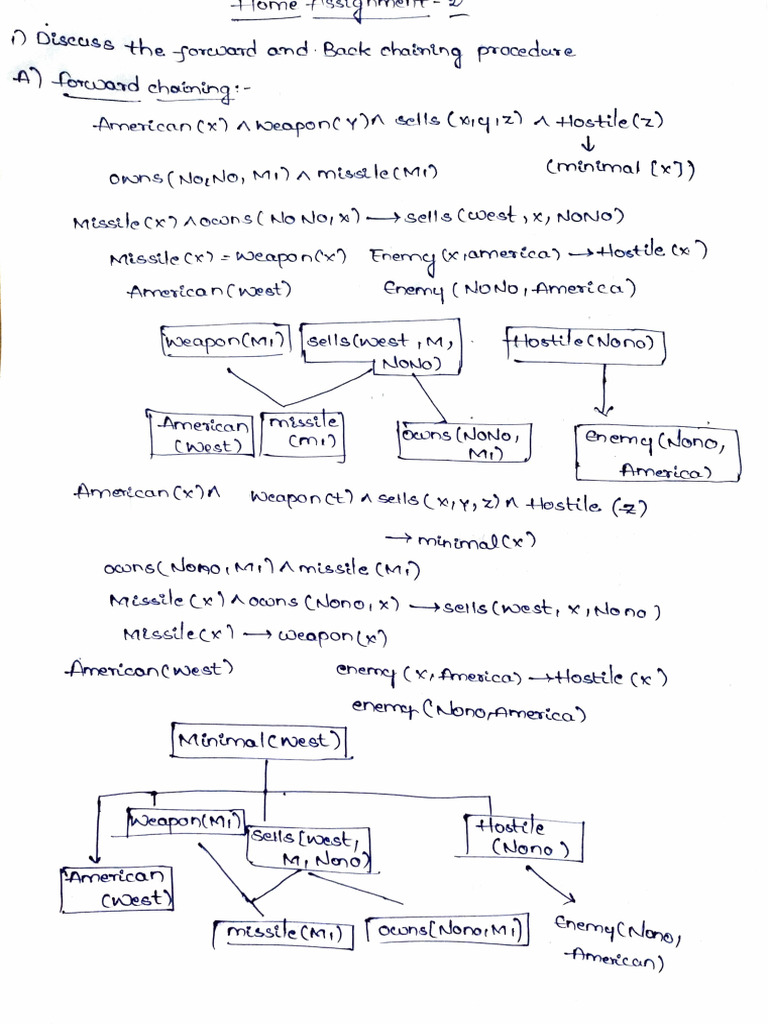 Home Assignment - 2
1) Discuss the forward and Back chaining procedure
A) forward chaining:-
American(x) ∧ Weapon(Y) ∧ sells(x,y,z) ∧ Hostile(z)
↓
(minimal [x])
owns(No,No, M1) ∧ missile(M1)
Missile(x) ∧ owns(NoNo,x) → sells(west, x, NONO)
Missile(x) = Weapon(x) Enemy(x, america) → Hostile(x)
American(west) Enemy(NONO, America)
Weapon(M1) sells(west, M, NONO) Hostile(Nono)
American (west) missile (m1) owns(NONO, M1) enemy(Nono, America)
American(x) ∧ weapon(t) ∧ sells(x,Y,z) ∧ Hostile (z)
→ minimal(x)
owns(Nono, M1) ∧ missile(M1)
Missile(x) ∧ owns(Nono, x) → sells(west, x, Nono)
Missile(x) → weapon(x)
American(west) enemy(x, America) → Hostile(x)
enemy(Nono, America)
Minimal(west)
Weapon(M1) Sells[west, M, Nono) Hostile (Nono)
American (west)
missile(M1) owns(Nono, M1) Enemy(Nono, American)